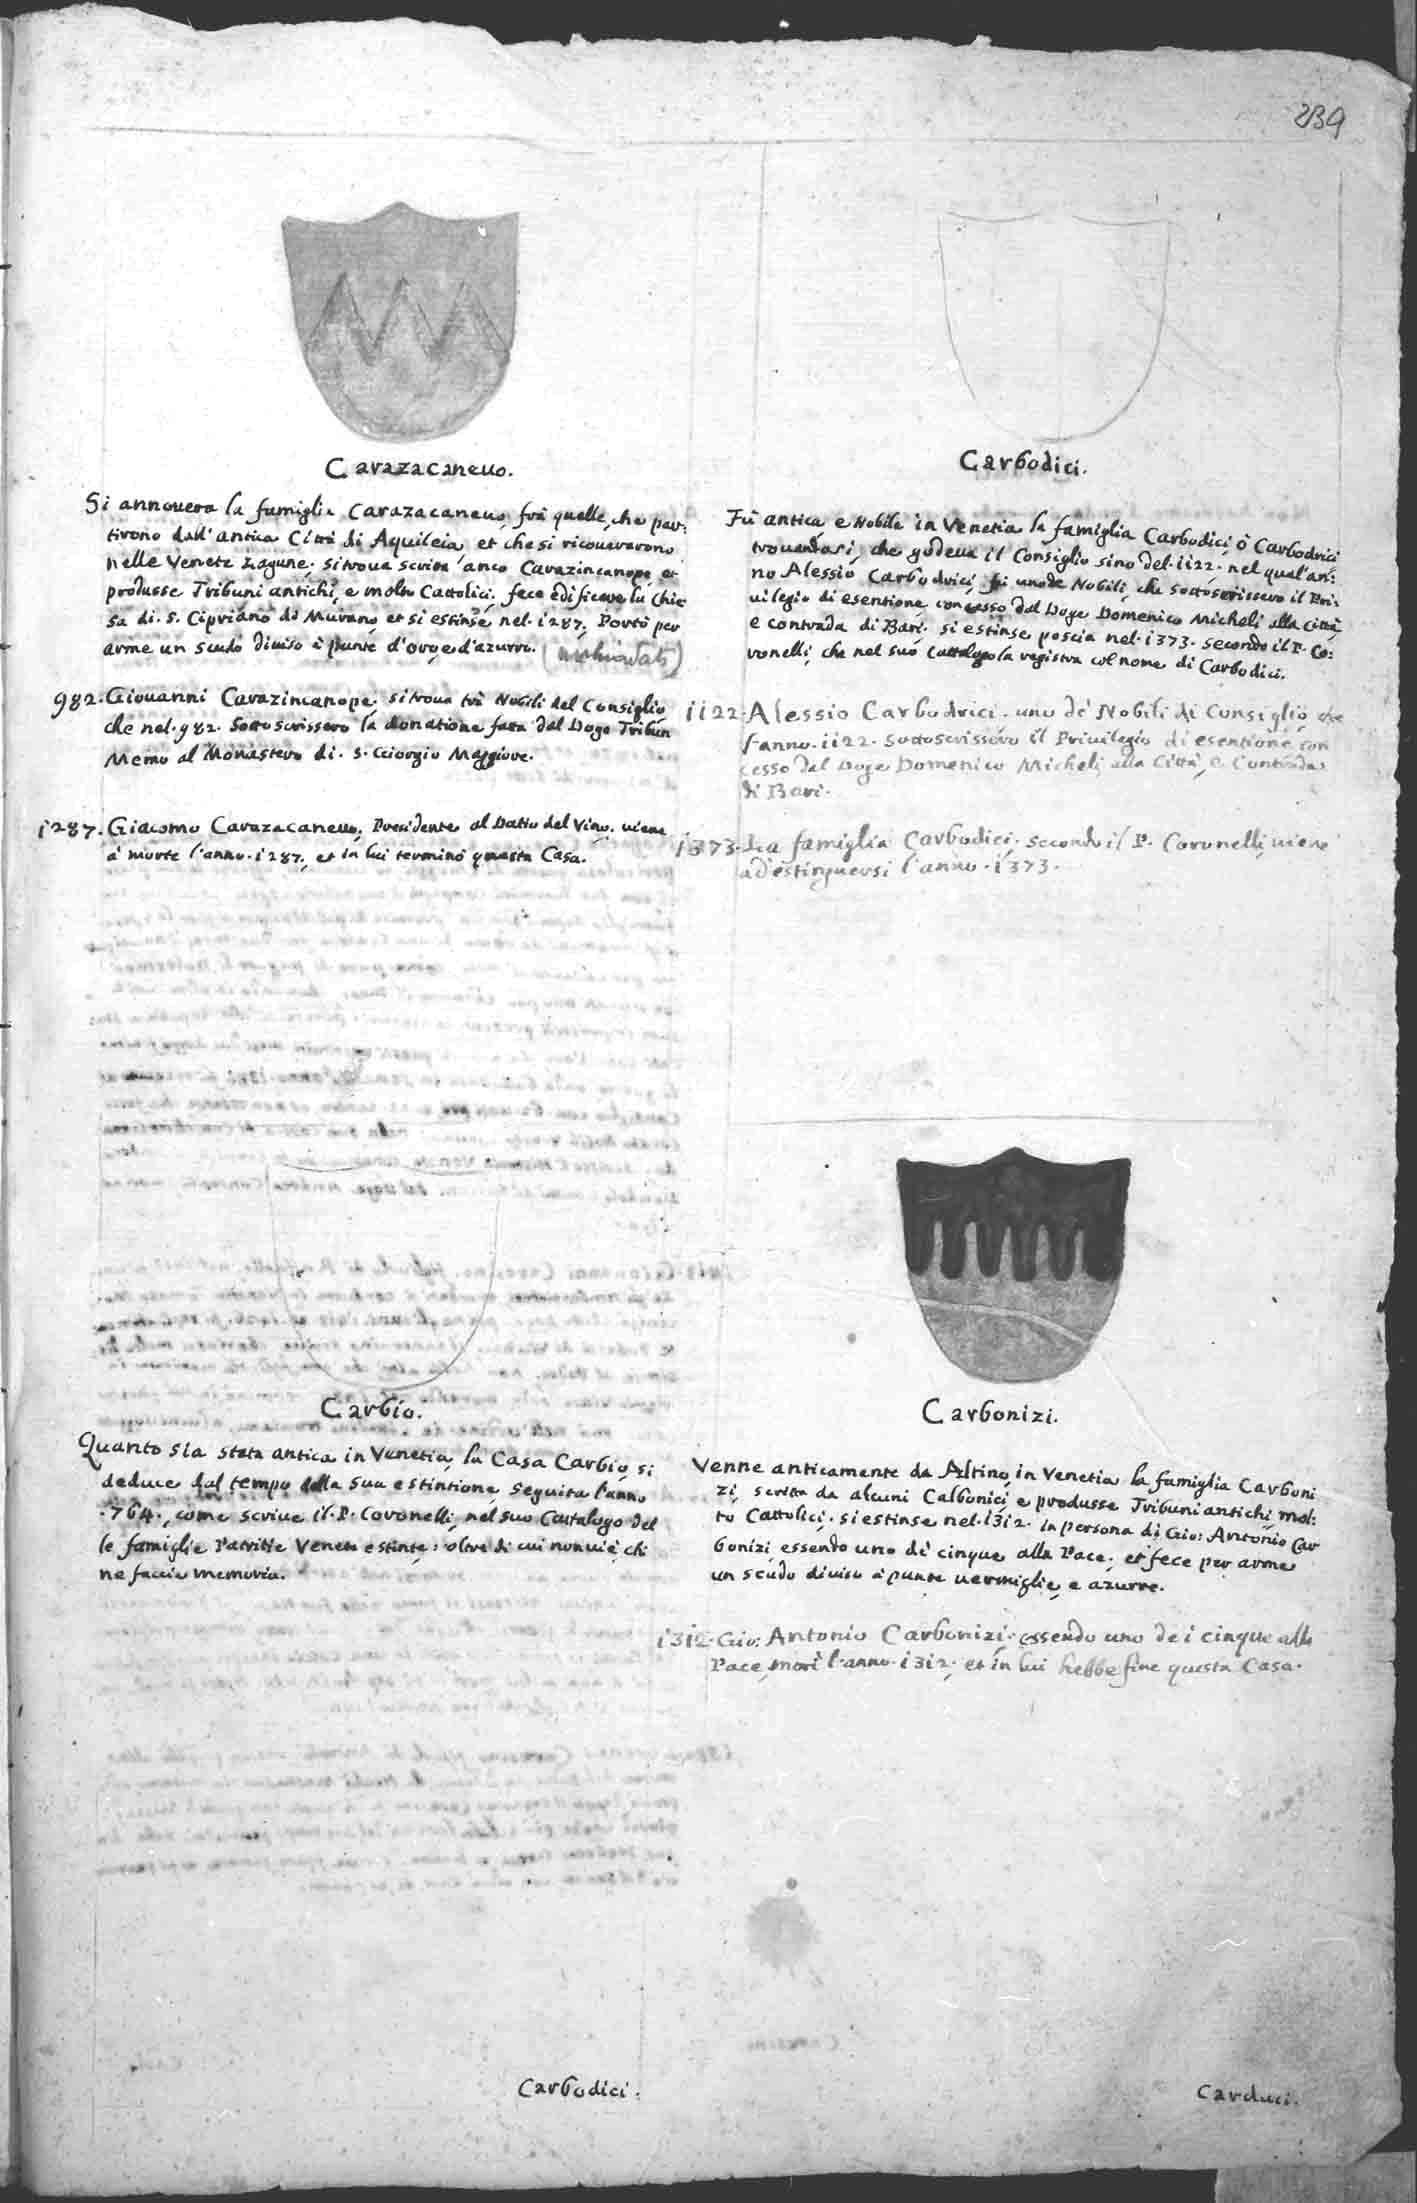 239
Carazacaneuo.
Si annouera la famiglia Carazacaneuo, frà quelle, che par:
tirono dall'antica Città di Aquileia, et che si ricouerarono
nelle Venete Lagune. si troua scritta anco Carazincanope, et
produsse Tribuni antichi, e molto Cattolici. fece edificare la Chie
sa di. S. Cipriano di Murano, et si estinse nel. 1287. Portò per
arme un scudo diuiso à punte d'oro, e d'azurro.
982. Giouanni Carazincanope. si troua trà Nobili del Consiglio
che nel. 982. Sottoscrissero la donatione fatta dal Doge Tribun
Memo al Monastero di. S. Giorgio Maggiore.
1287. Giacomo Carazacaneuo, Presidente al Datio del Vino. uiene
à morte l'anno. 1287. et in lui terminò questa Casa.
Carbio.
Quanto sia stata antica in Venetia, la Casa Carbio, si
deduce dal tempo della sua estintione, seguita l'anno
.764., come scriue il. P. Coronelli, nel suo Cattalogo del
le famiglie Patritie Venete estinte: oltre di cui non ui è chi
ne faccia memoria.
Carbodici.
Carbodici.
Fù antica e Nobile in Venetia la famiglia Carbodici, ò Carbodrici
trouandosi, che godeua il Consiglio sino del. 1122. nel qual'an:
no Alessio Carbodrici, fù uno de Nobili, che sottoscrissero il Pri:
uilegio di esentione, concesso dal Doge Domenico Micheli alla Città
e contrada di Bari. si estinse poscia nel. 1373. secondo il P. Co:
ronelli, che nel suo Cattalogo la registra col nome di Carbodici.
1122. Alessio Carbodrici. uno de' Nobili di Consiglio che
l'anno. 1122. sottoscrissero il Priuilegio di esentione con
cesso dal Doge Domenico Micheli alla Città, e Contrada
di Bari.
1373. La famiglia Carbodici, secondo il P. Coronelli, uiene
ad'estinguersi l'anno. 1373.
Carbonizi.
Venne anticamente da Altino, in Venetia la famiglia Carboni
zi, scritta da alcuni Calbonici, e produsse Tribuni antichi, mol:
to Cattolici. si estinse nel. 1312. in persona di Gio: Antonio Car
bonizi essendo uno di cinque alla Pace. et fece per arme
un scudo diuiso à punte uermiglie, e azurre.
1312. Gio: Antonio Carbonizi. essendo uno dei cinque alla
Pace, morì l'anno. 1312. et in lui hebbe fine questa Casa.
Carduci.